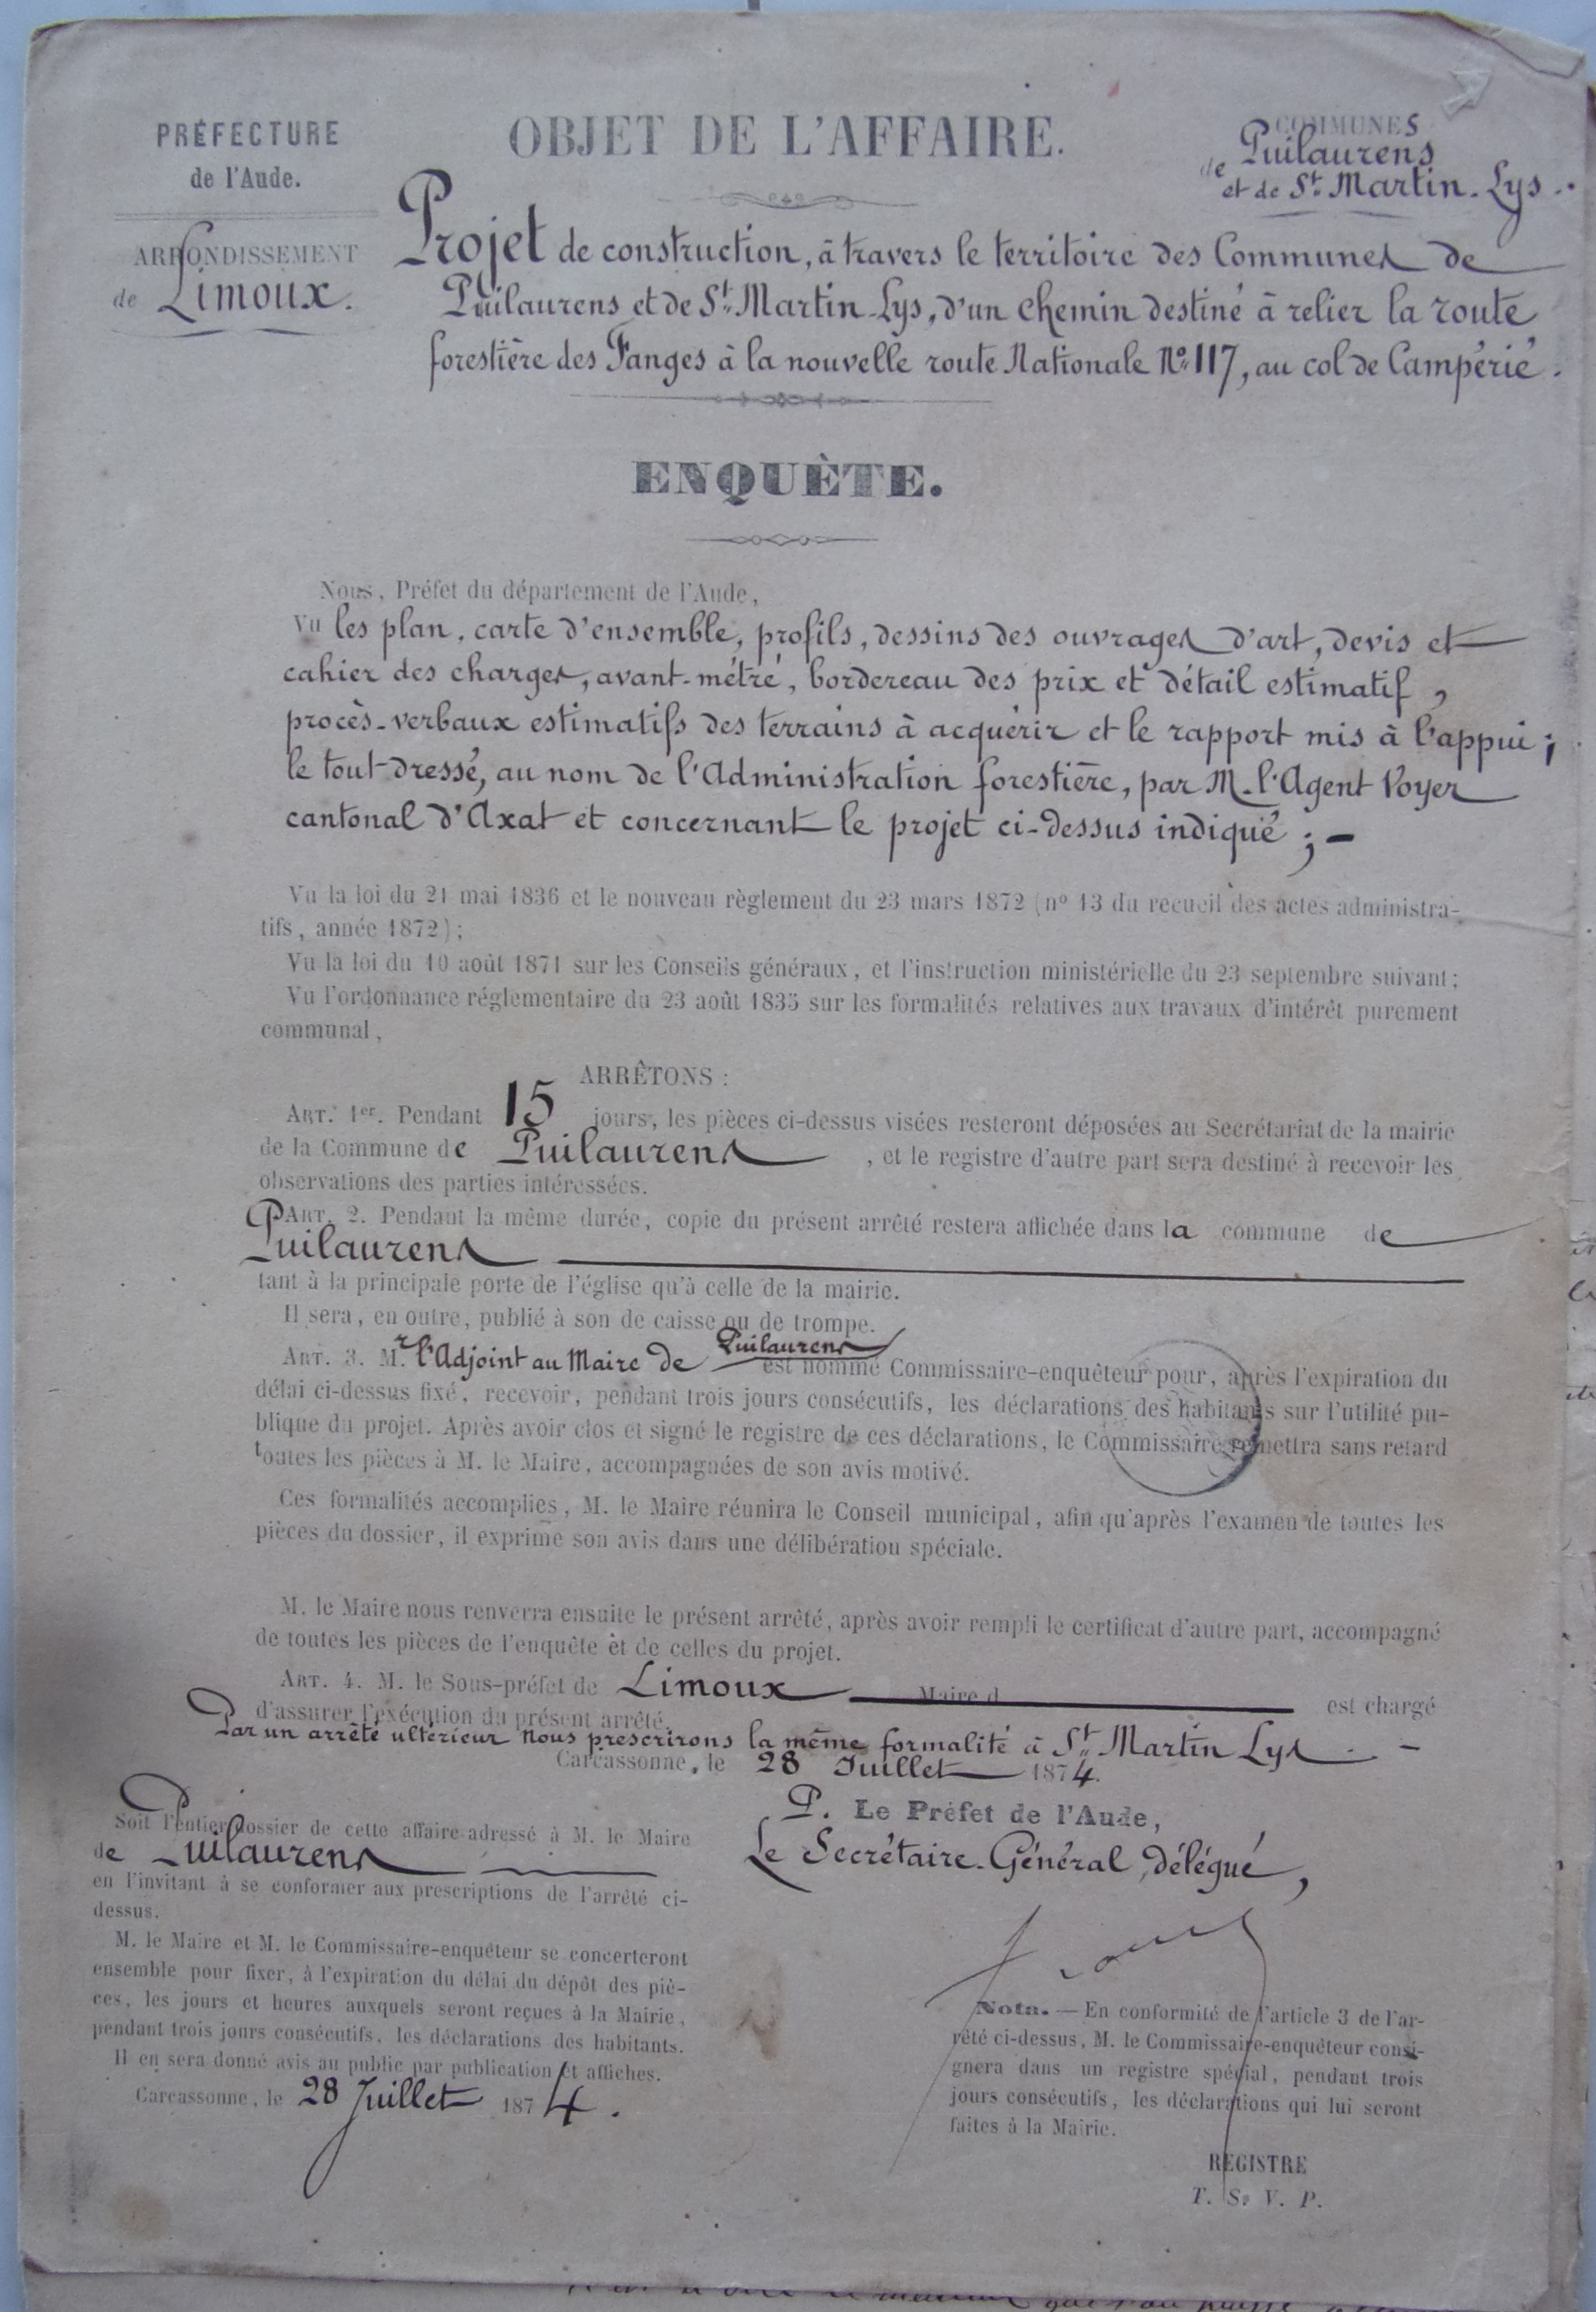 PRÉFECTURE
de l'Aude.
ARRONDISSEMENT
de Limoux.
OBJET DE L'AFFAIRE.
COMMUNES
de Puilaurens
et de St. Martin-Lys.
Projet de construction, à travers le territoire des Communes de
Puilaurens et de St. Martin-Lys, d'un chemin destiné à relier la route
forestière des Fanges à la nouvelle route Nationale No. 117, au col de Campérié.
ENQUÈTE.
Nous, Préfet du département de l'Aude,
Vu les plan, carte d'ensemble, profils, dessins des ouvrages d'art, devis et
cahier des charges, avant-métré, bordereau des prix et détail estimatif,
procès-verbaux estimatifs des terrains à acquérir et le rapport mis à l'appui;
le tout dressé, au nom de l'Administration forestière, par M. l'Agent Voyer
cantonal d'Axat et concernant le projet ci-dessus indiqué; -
Vu la loi du 21 mai 1836 et le nouveau règlement du 23 mars 1872 (no 13 du recueil des actes administra-
tifs, année 1872);
Vu la loi du 10 août 1871 sur les Conseils généraux, et l'instruction ministérielle du 23 septembre suivant;
Vu l'ordonnance réglementaire du 23 août 1835 sur les formalités relatives aux travaux d'intérêt purement
communal,
ARRÊTONS :
ART. 1er. Pendant 15 jours, les pièces ci-dessus visées resteront déposées au Secrétariat de la mairie
de la Commune de Puilaurens, et le registre d'autre part sera destiné à recevoir les
observations des parties intéressées.
ART. 2. Pendant la même durée, copie du présent arrêté restera affichée dans la commune de
Puilaurens
tant à la principale porte de l'église qu'à celle de la mairie.
Il sera, en outre, publié à son de caisse ou de trompe.
ART. 3. Mr l'Adjoint au Maire de Puilaurens est nommé Commissaire-enquêteur pour, après l'expiration du
délai ci-dessus fixé, recevoir, pendant trois jours consécutifs, les déclarations des habitants sur l'utilité pu-
blique du projet. Après avoir clos et signé le registre de ces déclarations, le Commissaire remettra sans retard
toutes les pièces à M. le Maire, accompagnées de son avis motivé.
Ces formalités accomplies, M. le Maire réunira le Conseil municipal, afin qu'après l'examen de toutes les
pièces du dossier, il exprime son avis dans une délibération spéciale.
M. le Maire nous renverra ensuite le présent arrêté, après avoir rempli le certificat d'autre part, accompagné
de toutes les pièces de l'enquête et de celles du projet.
ART. 4. M. le Sous-préfet de Limoux Maire d est chargé
d'assurer l'exécution du présent arrêté.
Par un arrêté ultérieur nous prescrirons la même formalité à St. Martin Lys. -
Carcassonne, le 28 Juillet 1874.
P. Le Préfet de l'Aude,
Le Secrétaire-Général, délégué,
Soit l'entier dossier de cette affaire adressé à M. le Maire
de Puilaurens
en l'invitant à se conformer aux prescriptions de l'arrêté ci-
dessus.
M. le Maire et M. le Commissaire-enquêteur se concerteront
ensemble pour fixer, à l'expiration du délai du dépôt des piè-
ces, les jours et heures auxquels seront reçues à la Mairie,
pendant trois jours consécutifs, les déclarations des habitants.
Il en sera donné avis au public par publication et affiches.
Carcassonne, le 28 Juillet 1874.
Nota. — En conformité de l'article 3 de l'ar-
rêté ci-dessus, M. le Commissaire-enquêteur consi-
gnera dans un registre spécial, pendant trois
jours consécutifs, les déclarations qui lui seront
faites à la Mairie.
REGISTRE
T. S. V. P.